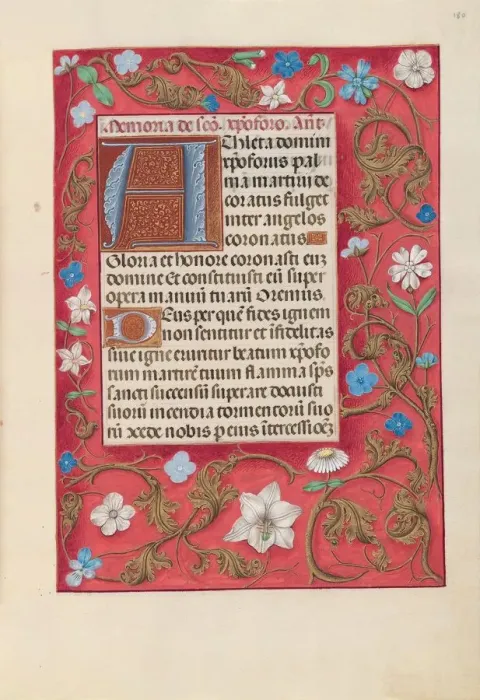 Memoria de sco. xpoforo. Ant.
Athleta domini
xpoforus pal
ma martirii de
coratus fulget
inter angelos
coronatus
Gloria et honore coronasti eum
domine Et constituisti eu super
opera manuu tuaru Oremus.
Deus per que fides ignem
non sentitur et ifidelitas
sine igne eruntur beatum xpofo
rum martire tuum flamma sps
sancti succensu superare docuisti
suoru incendia tormentoru suo
ru xcede nobis p eius itercessioez